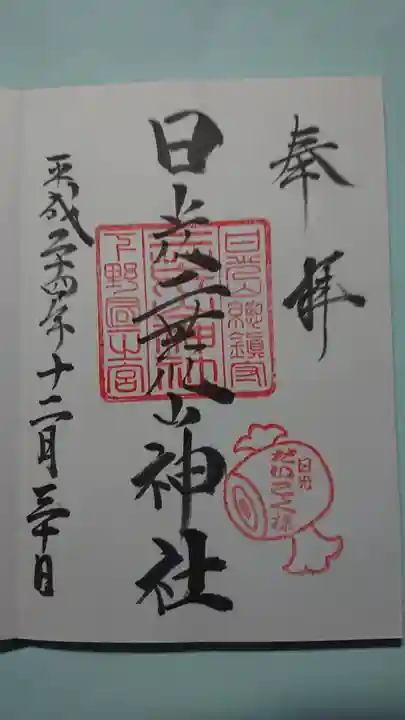 奉拝
日光山總鎮守
日光二荒山神社
下野國一之宮
平成二十四年十二月三十日
日光
だいこく様